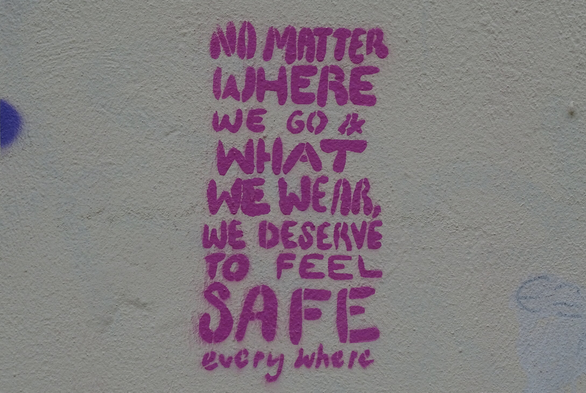 NO MATTER
WHERE
WE GO &
WHAT
WE WEAR,
WE DESERVE
TO FEEL
SAFE
every where